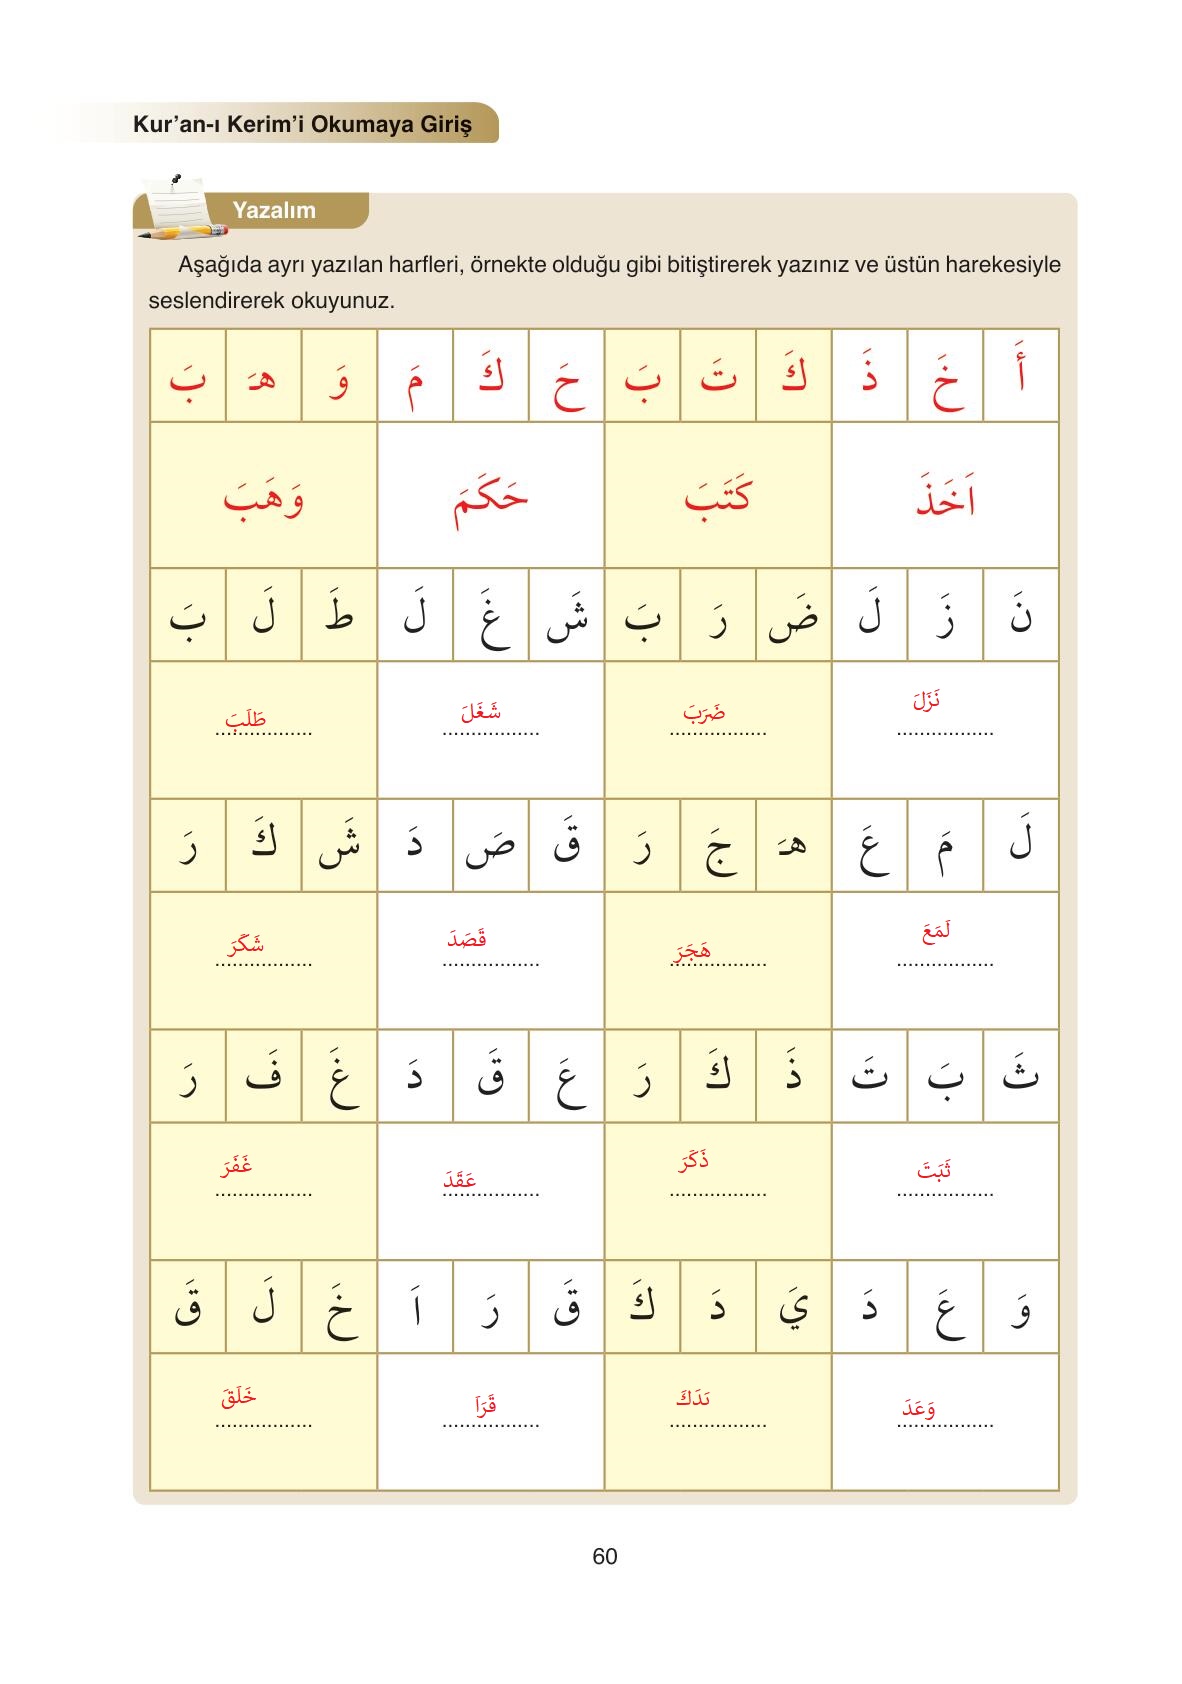 Kur’an-ı Kerim’i Okumaya Giriş
Yazalım
Aşağıda ayrı yazılan harfleri, örnekte olduğu gibi bitiştirerek yazınız ve üstün harekesiyle
seslendirerek okuyunuz.
أَ خَ ذَ كَ تَ بَ حَ كَ مَ وَ هـَ بَ
اَخَذَ كَتَبَ حَكَمَ وَهَبَ
نَ زَ لَ ضَ رَ بَ شَ غَ لَ طَ لَ بَ
نَزَلَ ضَرَبَ شَغَلَ طَلَبَ
................. ................. ................. .................
لَ مَ عَ هـَ جَ رَ قَ صَ دَ شَ كَ رَ
لَمَعَ هَجَرَ قَصَدَ شَكَرَ
................. ................. ................. .................
ثَ بَ تَ ذَ كَ رَ عَ قَ دَ غَ فَ رَ
ثَبَتَ ذَكَرَ عَقَدَ غَفَرَ
................. ................. ................. .................
وَ عَ دَ يَ دَ كَ قَ رَ اَ خَ لَ قَ
وَعَدَ ىَدَكَ قَرَاَ خَلَقَ
................. ................. ................. .................
60